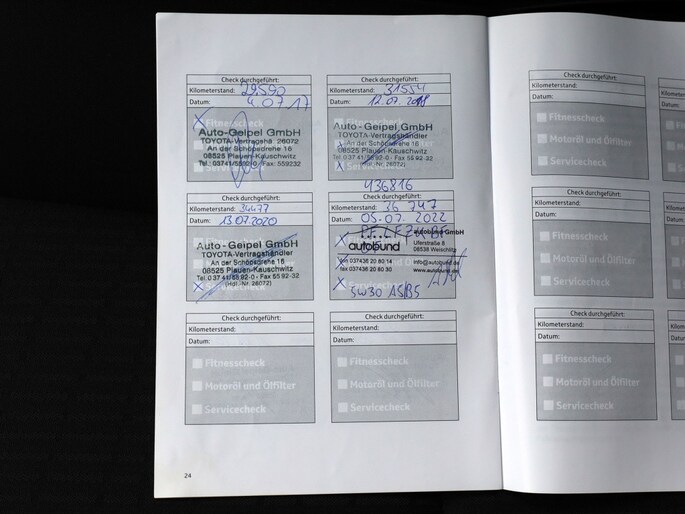 Check durchgeführt:
Kilometerstand: 29590
Datum: 4.07.17
Fitnesscheck
Auto-Geipel GmbH
TOYOTA-Vertragshä. 26072
An der Schöpsdrehe 16
08525 Plauen-Kauschwitz
Tel.: 03741/5592-0 Fax: 559232
Check durchgeführt:
Kilometerstand: 31554
Datum: 12.07.2018
Auto - Geipel GmbH
TOYOTA-Vertragshändler
An der Schöpsdrehe 16
08525 Plauen-Kauschwitz
Tel. 0 37 41/55 92-0 - Fax 55 92-32
(Hdl.-Nr. 26072)
436816
Check durchgeführt:
Kilometerstand: 34477
Datum: 13.07.2020
Auto - Geipel GmbH
TOYOTA-Vertragshändler
An der Schöpsdrehe 16
08525 Plauen-Kauschwitz
Tel. 0 37 41/55 92-0 - Fax 55 92-32
(Hdl.-Nr. 26072)
Check durchgeführt:
Kilometerstand: 36 747
Datum: 05.07.2022
autobund GmbH
Uferstraße 8
08538 Weischlitz
autobund
fon 037436 20 80 14
fax 037436 20 80 30
info@autobund.de
www.autobund.de
5W30 A5/B5
Check durchgeführt:
Kilometerstand:
Datum:
Fitnesscheck
Motoröl und Ölfilter
Servicecheck
Check durchgeführt:
Kilometerstand:
Datum:
Fitnesscheck
Motoröl und Ölfilter
Servicecheck
24
Check durchgeführt:
Kilometerstand:
Datum:
Fitnesscheck
Motoröl und Ölfilter
Servicecheck
Check durchgeführt:
Kilometerstand:
Datum:
Fitnesscheck
Motoröl und Ölfilter
Servicecheck
Check durchgeführt:
Kilometerstand:
Datum:
Fitnesscheck
Motoröl und Ölfilter
Servicecheck